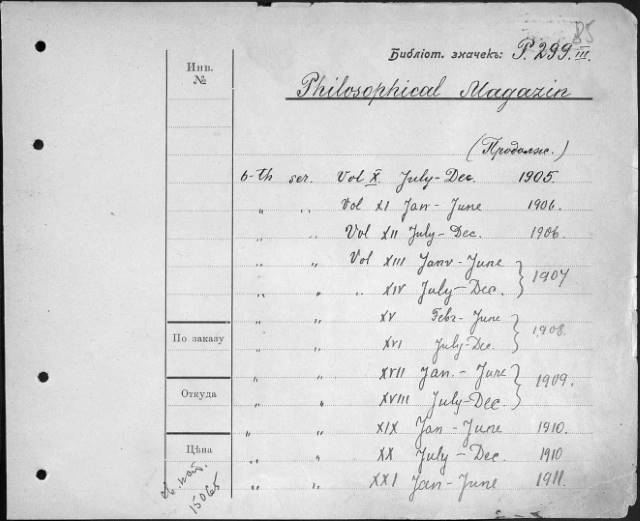 85
Библіот. значекъ: P. 299 III.
Инв.
№
Philosophical Magazin
(Продолж.)
6-th ser. Vol X. July-Dec. 1905.
„ „ Vol XI Jan-June 1906.
„ „ Vol XII July-Dec. 1906.
„ „ Vol XIII Janv-June } 1907
„ „ „ XIV July-Dec.
„ „ XV Febr-June } 1908.
По заказу „ „ XVI July-Dec.
„ „ XVII Jan.-June } 1909.
Откуда „ „ XVIII July-Dec.
„ „ XIX Jan-June 1910.
Цѣна „ „ XX July-Dec. 1910
„ „ XXI Jan-June 1911.
15065